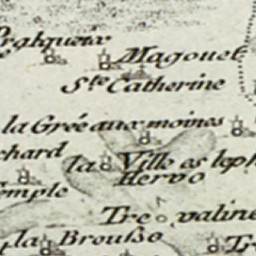 Pralqueix
Magouet
Ste Catherine
la Grée aux moines
chard
la Ville es leph
Hervo
emple
Tre valine
la Brousso
Tr